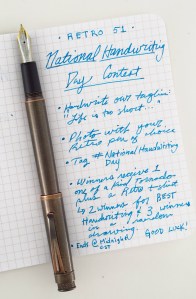 • RETRO 51 •
National Handwriting
Day Contest
• Handwrite our tagline:
"Life is too short"
• Photo with your
Retro pen of choice
• Tag # National Handwriting
Day
• Winners receive 1
one of a kind Tornado
plus a Retro t-shirt
↳ 2 winners for BEST
Handwriting & 3 winners
in a random
drawing.
• Ends @ Midnight
CST
GOOD LUCK!